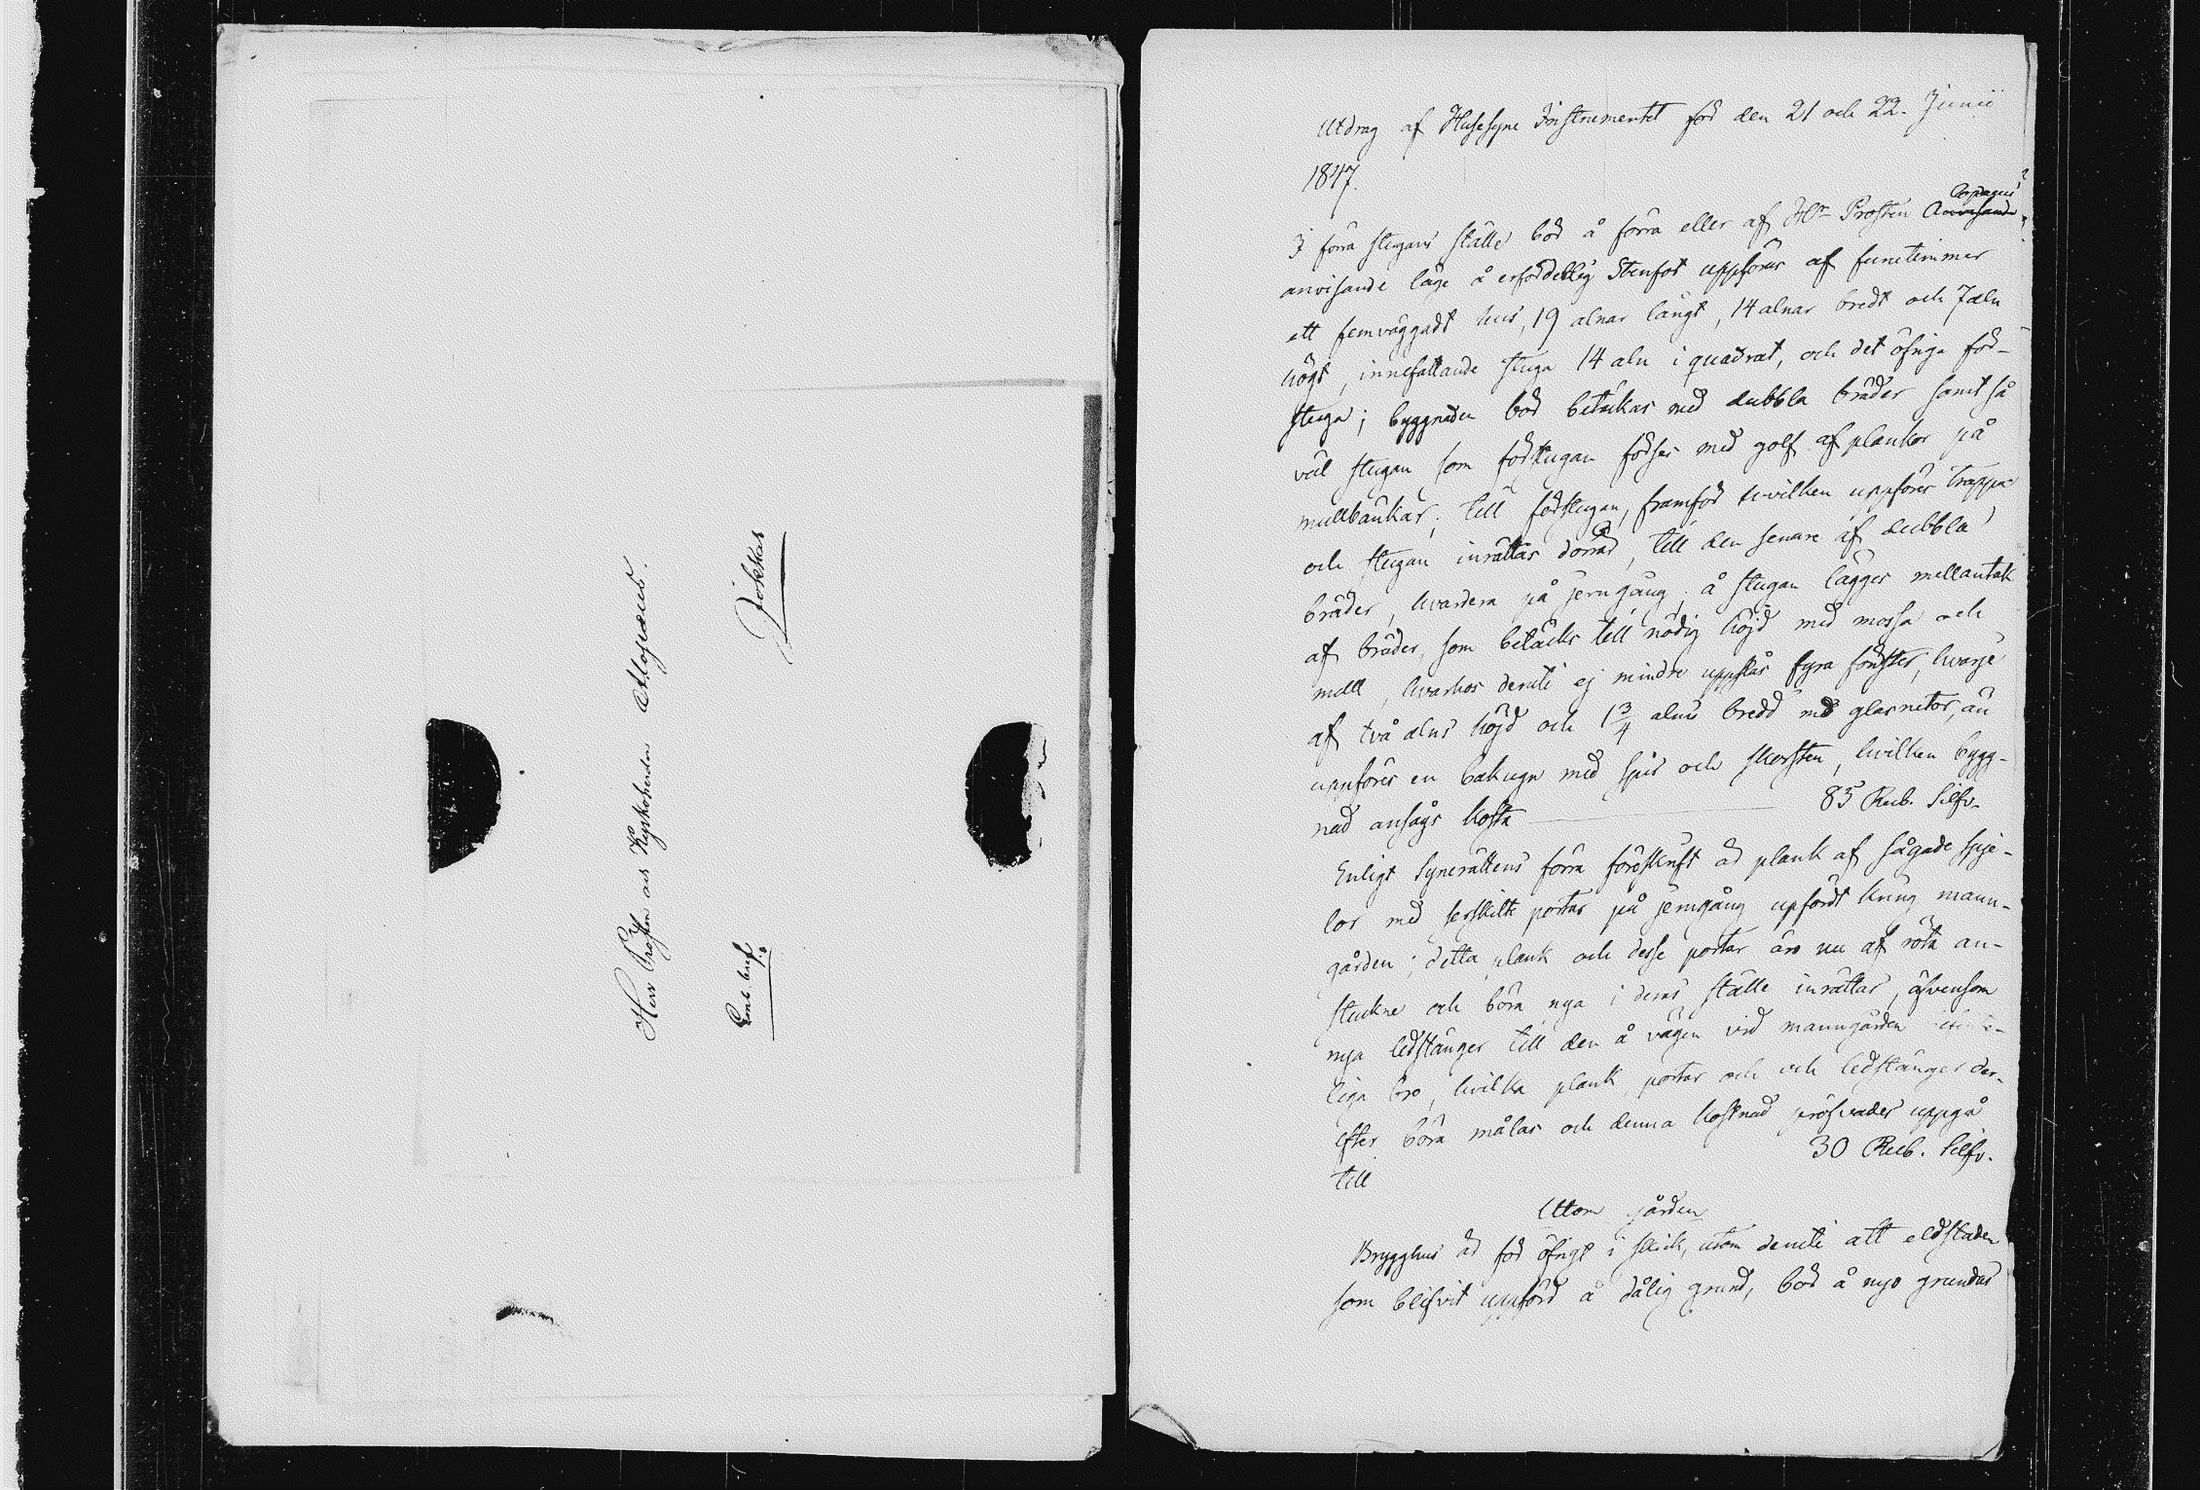 Herr Prosten och Kyrkoherden Alopæus.
Jokkas
Emb. bref.
Utdrag af Husesyns Instrumentet för den 21 och 22. Junii
1847.
I förra stugans ställe bör å förra eller af HrProsten Alopæus
anvisande läge å erforderlig Stenfot uppföras af furutimmer
ett femväggadt hus, 19 alnar långt, 14 alnar bredt och 7 aln
högt, innefattande stuga 14 aln i quadrat, och det öfriga för-
stuga; byggnaden bör betäckas med dubbla bräder samt så
väl stugan som förstugan förses med golf af plankor på
mullbänkar; till förstugan, framför hvilken uppföres trappa
och stugan inrättas dörrar, till den senare af dubbla
bräder, hvardera på jerngång; å stugan lägges mellantak
af bräder, som betäcks till nödig höjd med mossa och
mull, hvarhos deruti ej mindre upptas fyra fönster, hvarje
af två alns höjd och 1 3/4 alns bredd med glasrutor, än
uppföres en bakugn med spis och skorsten, hvilken bygg-
nad ansågs kosta 85 Rub. Silfv.
Enligt Synerättens förra föreskrift är plank af sågade spje-
lor med serskilte portar på jerngång upfördt kring mann-
gården; detta plank och desse portar äro nu af röta an-
stuckne och böra nya i deras ställe inrättas, äfvensom
nya ledstänger till den å vägen vid manngården
liga bro, hvilka plank, portar och och ledstänger der-
efter böra målas och denna kostnad pröfvades uppgå
till 30 Rub. Silfv.
Uttom gården
Brygghus är för öfrigt i skick, utom deruti att eldstaden
som blifvit uppförd å dålig grund, bör å nyo grundas